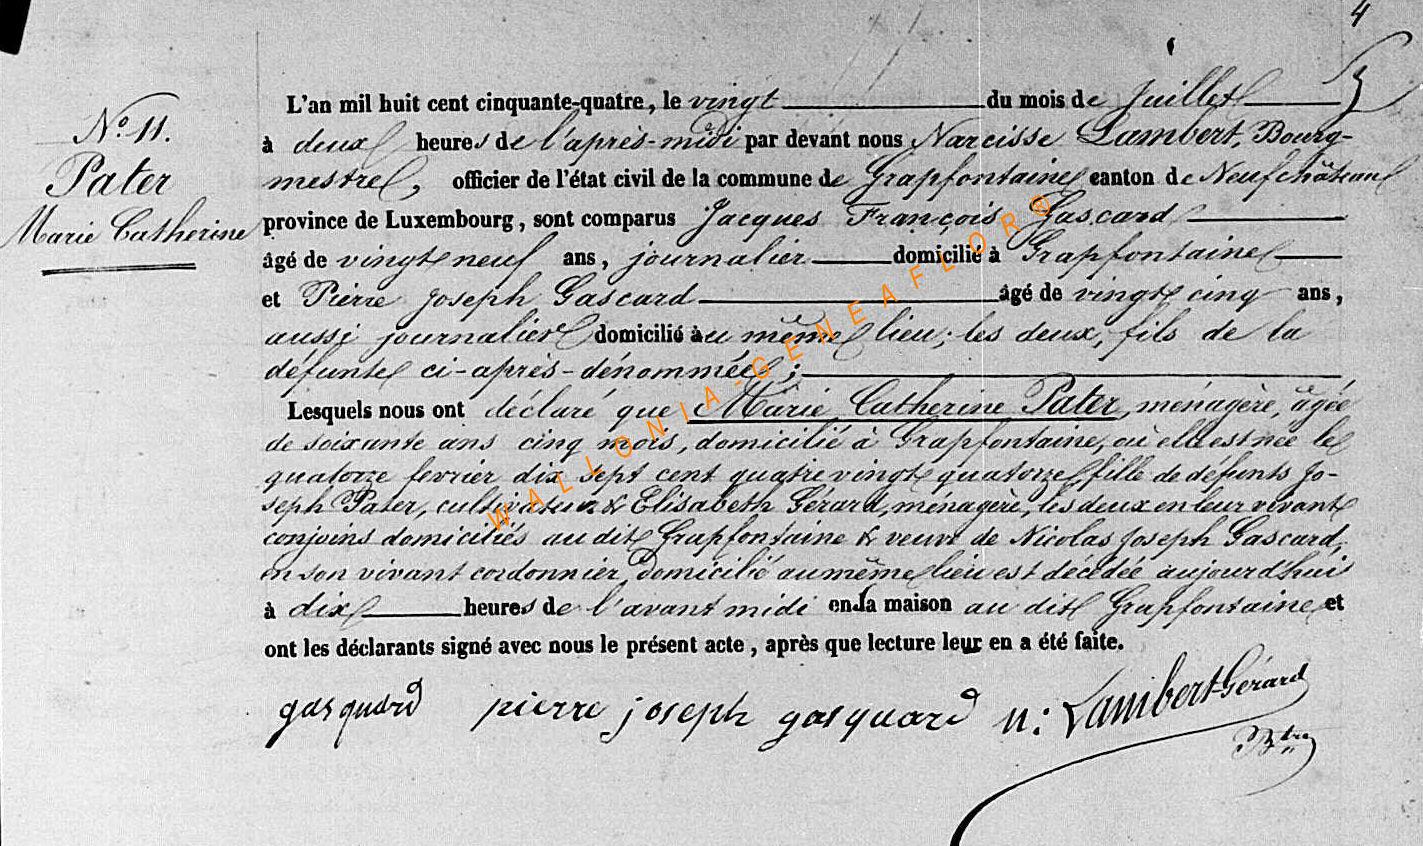 4
N.º 11.
Pater
Marie Catherine
L'an mil huit cent cinquante-quatre, le vingt du mois de Juillet
à deux heures de l'après-midi par devant nous Narcisse Lambert, Bourg-
mestre, officier de l'état civil de la commune de Grapfontaine canton de Neufchâteau
province de Luxembourg, sont comparus Jacques François Gascard
âgé de vingt neuf ans, journalier domicilié à Grapfontaine
et Pierre Joseph Gascard âgé de vingt cinq ans,
aussi journalier domicilié au même lieu; les deux, fils de la
défunte ci-après-dénommée;
Lesquels nous ont déclaré que Marie Catherine Pater, ménagère, âgée
de soixante ans cinq mois, domicilié à Grapfontaine, où elle est née le
quatorze fevrier dix sept cent quatre vingt quatorze, fille de défunts Jo-
seph Pater, cultivateur & Elisabeth Gérard, ménagère, les deux en leur vivant
conjoins domiciliés au dit Grapfontaine & veuve de Nicolas Joseph Gascard,
en son vivant cordonnier, domicilié au même lieu est décédée aujourdhui
à dix heures de l'avant midi en la maison au dit Grapfontaine et
ont les déclarants signé avec nous le présent acte, après que lecture leur en a été faite.
gasquard pierre joseph gasquard n: Lambert-Gérard
Btre
WALLONIA-GENEAFLOR®